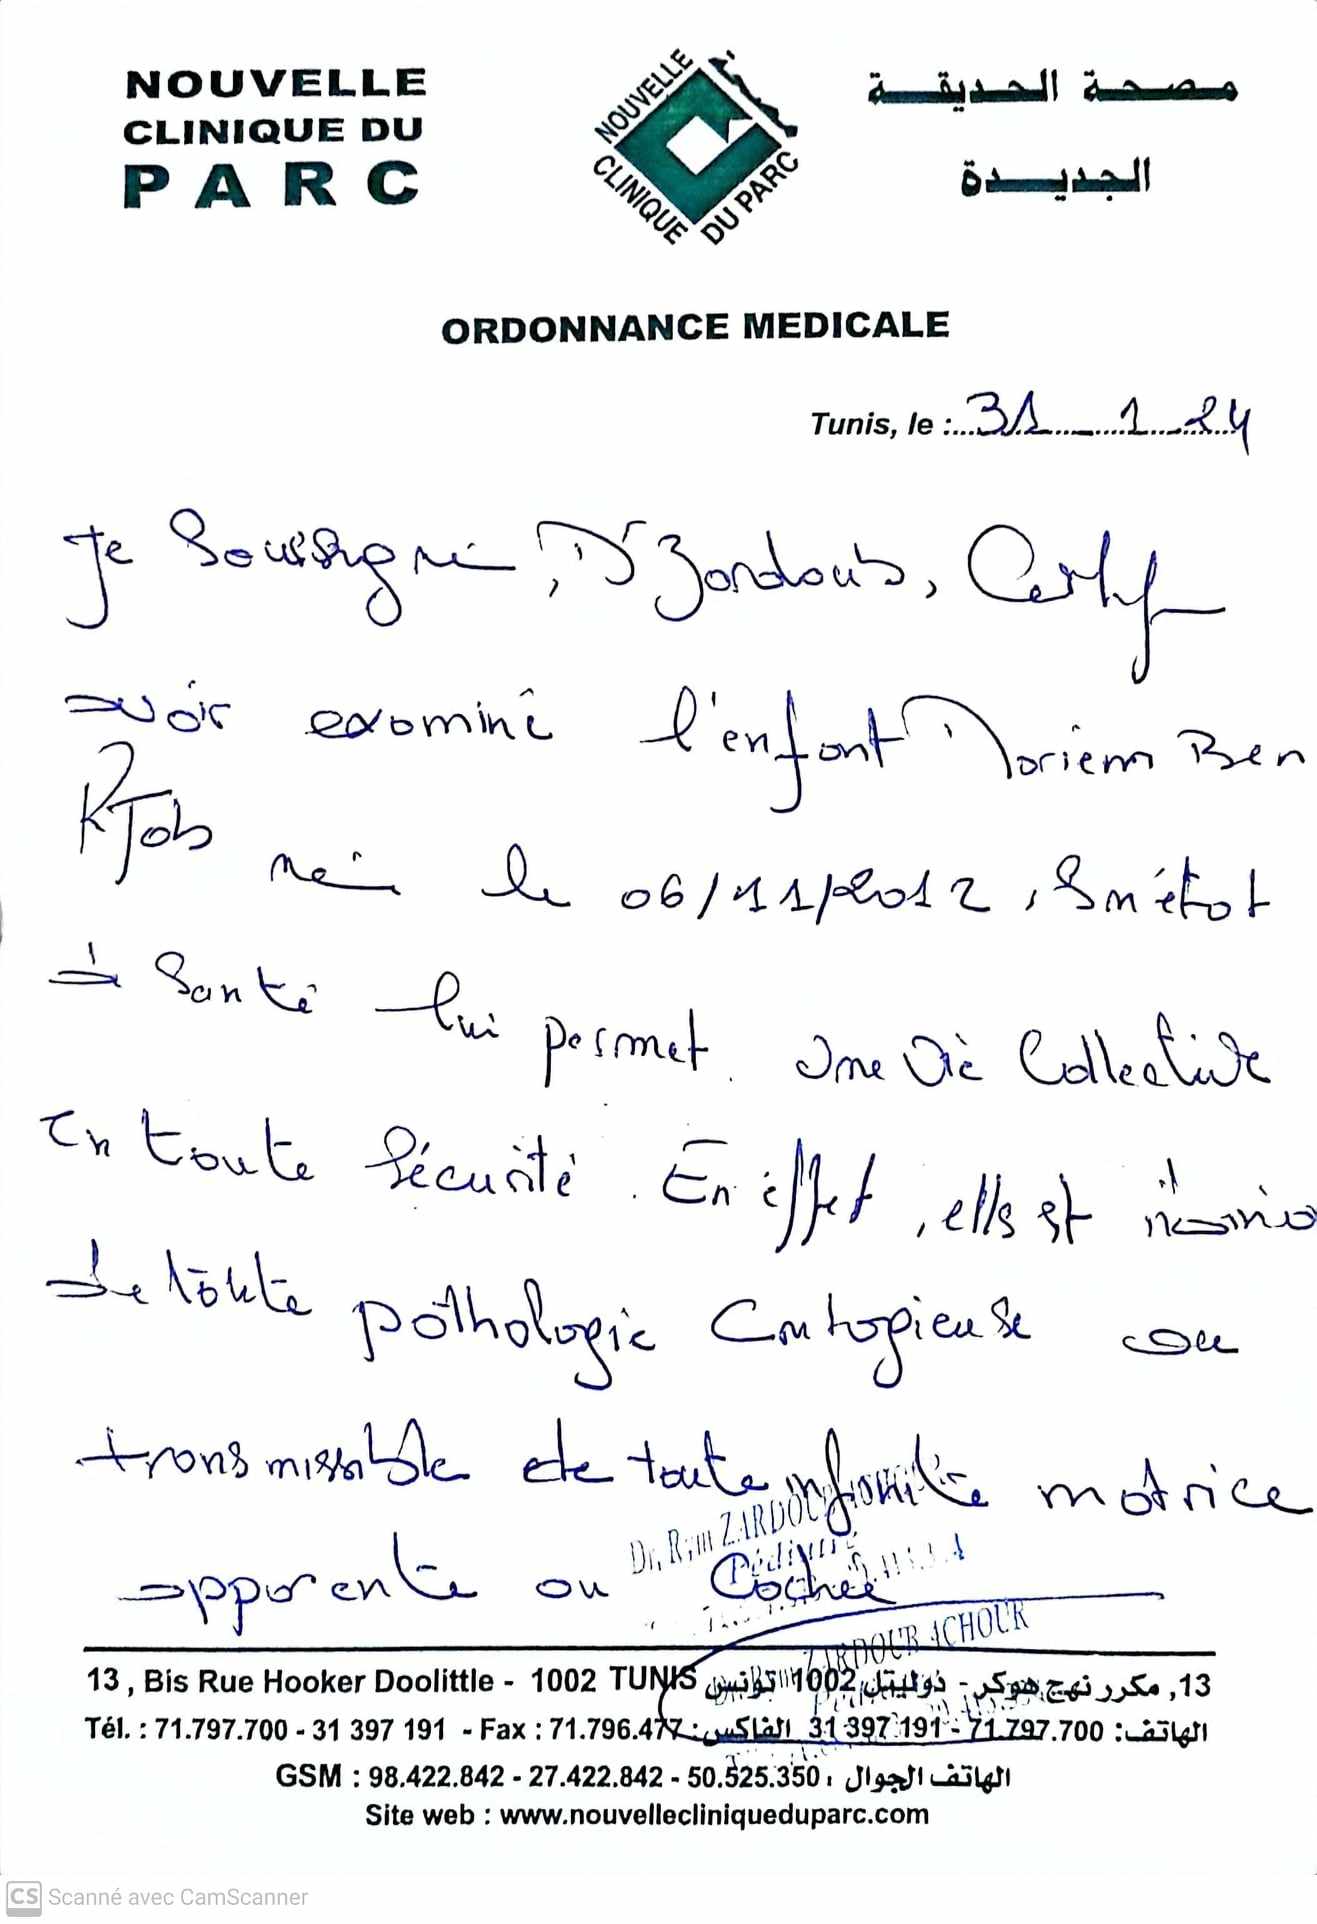 NOUVELLE
CLINIQUE DU
PARC
NOUVELLE
CLINIQUE
DU PARC
مصحة الحديقة
الجديدة
ORDONNANCE MEDICALE
Tunis, le : 31_1_24
Je soussigné, Dr Zardoub, Certifie
avoir examiné l'enfant Mariem Ben
KTab née le 06/11/2012, Son état
de Santé lui permet une vie Collective
en toute sécurité. En effet, elle est
de toute pathologie Contagieuse ou
transmissible et de toute infirmité motrice
apparente ou Cachée
Dr. Rim ZARDOUB
ZARDOUB ACHOUR
13 , Bis Rue Hooker Doolittle - 1002 TUNIS
13, مكرر نهج هوكر - دوليتل 1002 تونس
Tél. : 71.797.700 - 31 397 191 - Fax : 71.796.477
الهاتف: 71.797.700 - 31 397 191 الفاكس:
GSM : 98.422.842 - 27.422.842 - 50.525.350 : الهاتف الجوال
Site web : www.nouvellecliniqueduparc.com
CS Scanné avec CamScanner